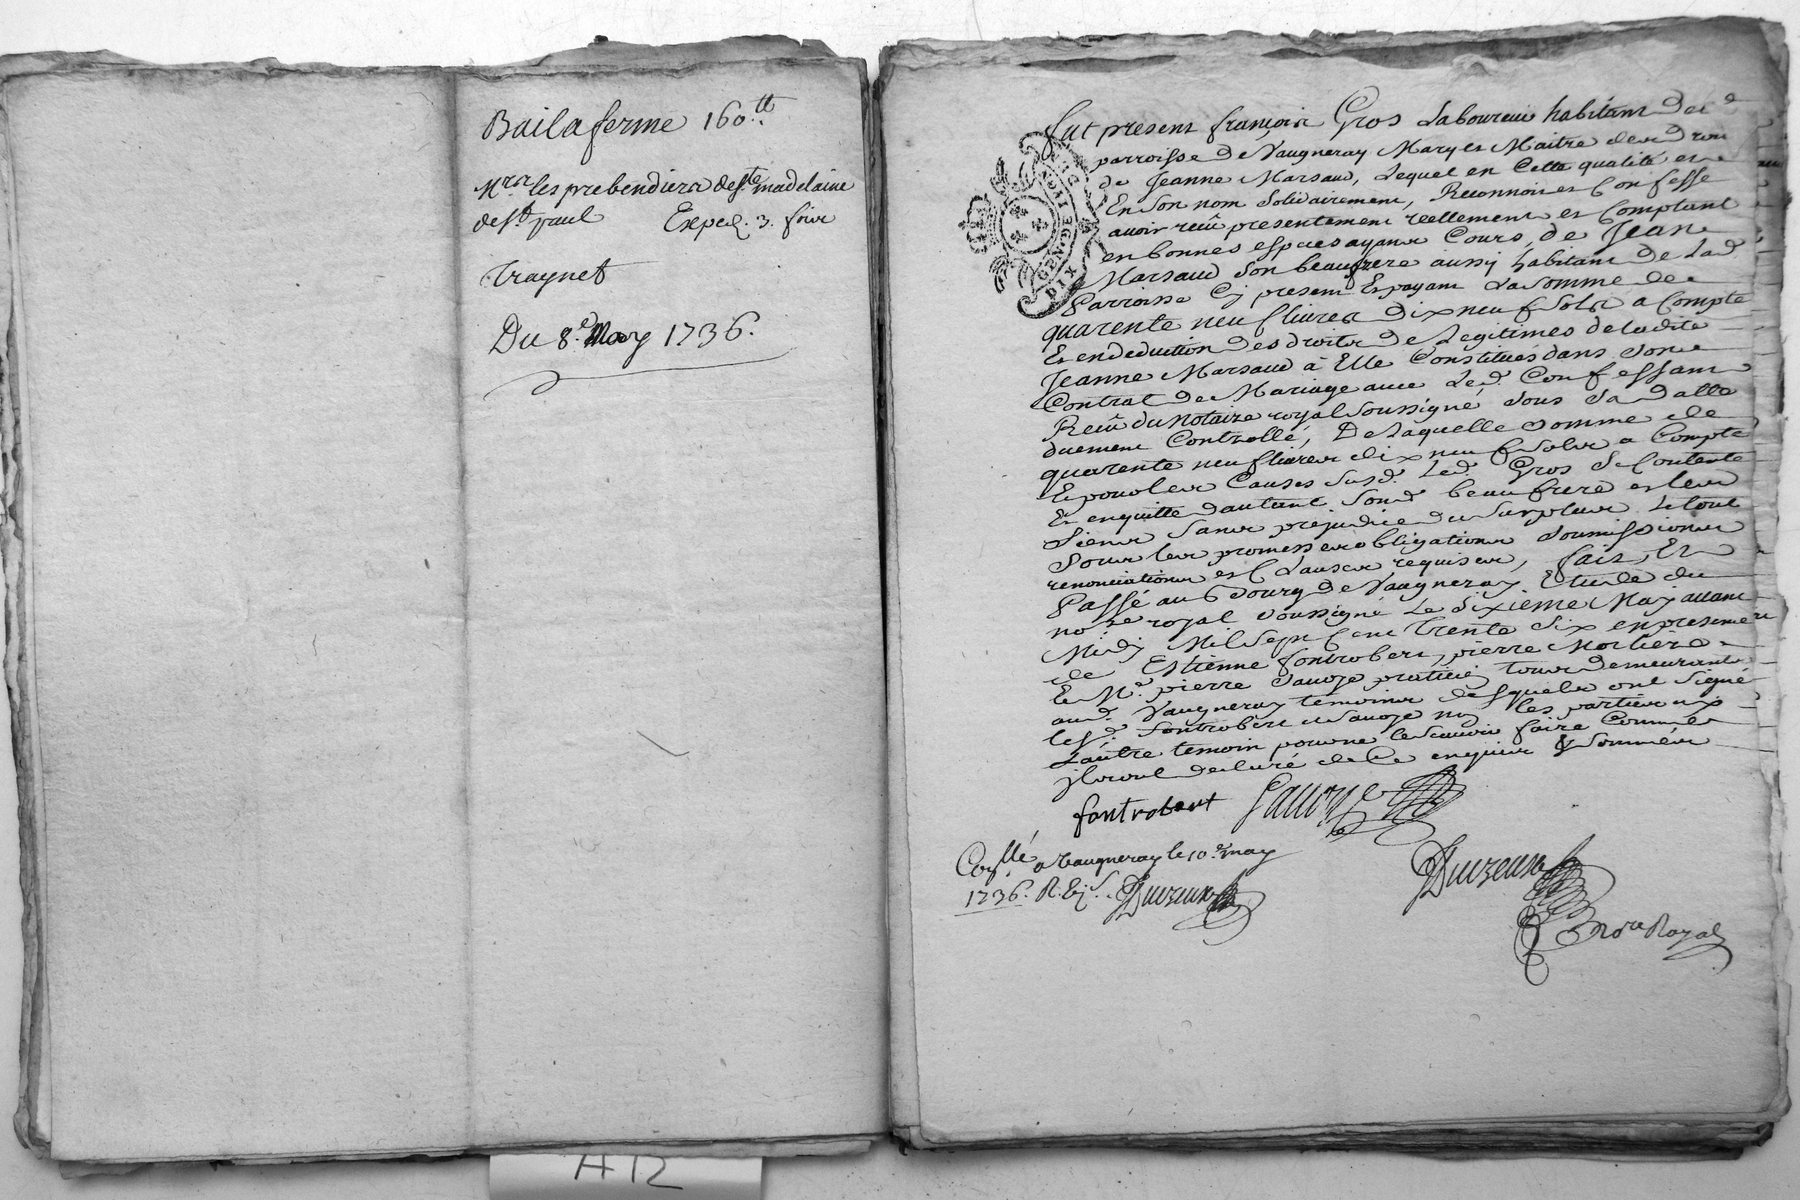 Bail a ferme 160.tt
Mrs les prebendiers de ste madelaine
de st paul Exped. 3. fois
Traynet
Du 8.e May 1736.
fut present françois Gros Laboureur habitant de
parroisse de Vaugneray Mary et Maitre des droits
de Jeanne Marsaud, Lequel en Cette qualité et
En Son nom Solidairement, Reconnoit et Confesse
avoir reçû presentement reellement et Comptant
en bonnes especes ayant Cours, de Jean
Marsaud Son beaufrere aussy habitant de Lad.
Parroisse Cy present Et payant La Somme de
quarente neuf livres dix neuf Sols a Compte
Et en deduction des droits de Legitimes de ladite
Jeanne Marsaud à Elle Constitués dans Son
Contrat de Mariage avec Led. Confessant
Reçû du Notaire royal Soussigné Sous Sa datte
duement Controllé, De Laquelle Somme de
quarente neuf livres dix neuf Sols a Compte
Et pour les Causes Susd. Led. Gros Se Contente
Et en quitte d'autant Sond. beaufrere et les
Siens Sans préjudice du Surplus Le tout
Sous les promesses obligations Soumissions
renonciations et Clauses requises, fait, Et
Passé au Bourg de Vaugneray Etude du
no.re royal Soussigné Le Sixième May avant
Midy Mil Sept Cent Trente Six en presence
de Estienne fontrobert, pierre Mortier
Et M.e pierre Sauoye praticien tous demeurants
aud. Vaugneray temoins desquels ont Signé
lesd. fontrobert et Sauoye non les parties ny
L'autre temoin pour ne le Scavoir faire Comme
ils ont declaré de Ce enquis & Sommés
fontrobert Sauoye
Con.llé a Vaugneray le 10.e may
1736. R.
DIX
GEN. DE LYON
no.re Royal
A12